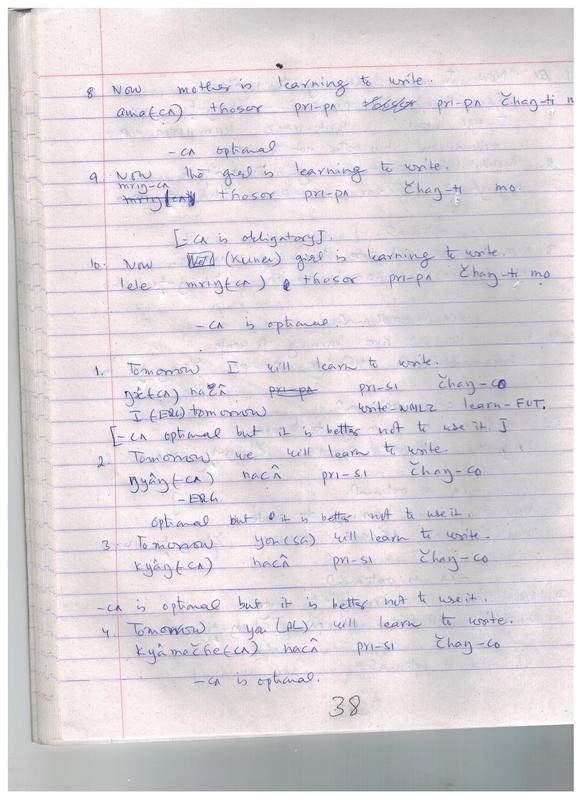 8. Now mother is learning to write.
ama(-cʌ) thosor pri-pʌ pri-pʌ čhaŋ-ti
-cʌ optional
9. Now the girl is learning to write.
mriŋ-cʌ
mriŋ(-cʌ) thosor pri-pʌ čhaŋ-ti mo
[-cʌ is obligatory].
10. Now (Kunci) girl is learning to write.
lele mriŋ(-cʌ) thosor pri-pʌ čhaŋ-ti mo
-cʌ is optional.
1. Tomorrow I will learn to write.
ŋɔ̂(-cʌ) nacʌ̂ pri-pʌ pri-si čhaŋ-co
I (ERG) tomorrow write-NMLZ learn-FUT.
[-cʌ optional but it is better not to use it.]
2. Tomorrow we will learn to write.
ŋyâŋ(-cʌ) nacʌ̂ pri-si čhaŋ-co
-ERG
optional but it is better not to use it.
3. Tomorrow you(SG) will learn to write.
kyâŋ(-cʌ) nacʌ̂ pri-si čhaŋ-co
-cʌ is optional but it is better not to use it.
4. Tomorrow you (PL) will learn to write.
kyâmačhe(-cʌ) nacʌ̂ pri-si čhaŋ-co
-cʌ is optional.
38